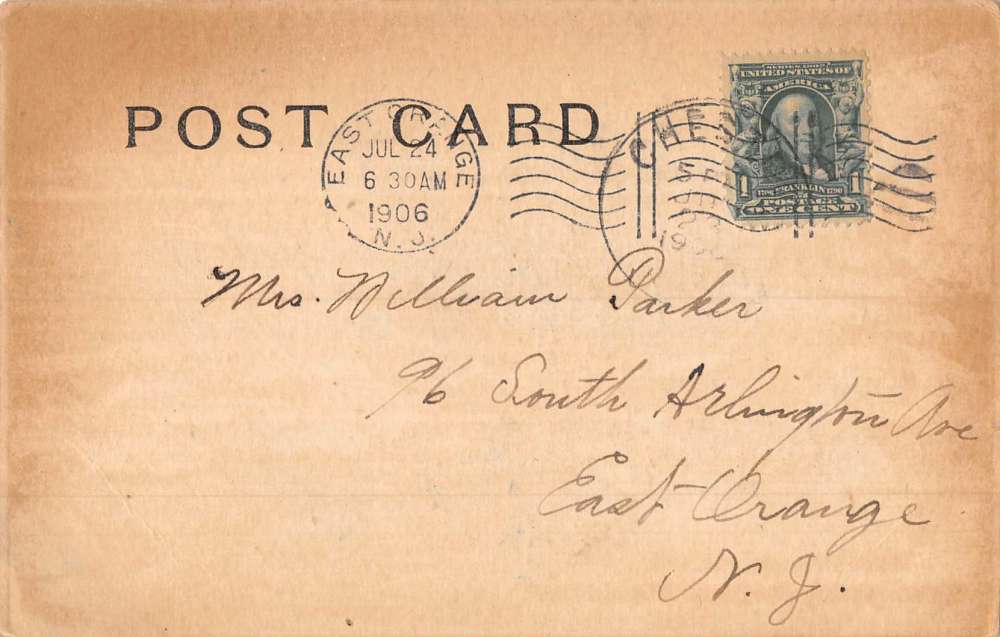 POST CARD
EAST ORANGE
JUL 24
6 30AM
1906
N. J.
SERIES 1902
UNITED STATES OF
AMERICA
1706 FRANKLIN 1790
1 1
POSTAGE
ONE CENT
Mrs. William Parker
96 South Arlington Ave
East Orange
N. J.